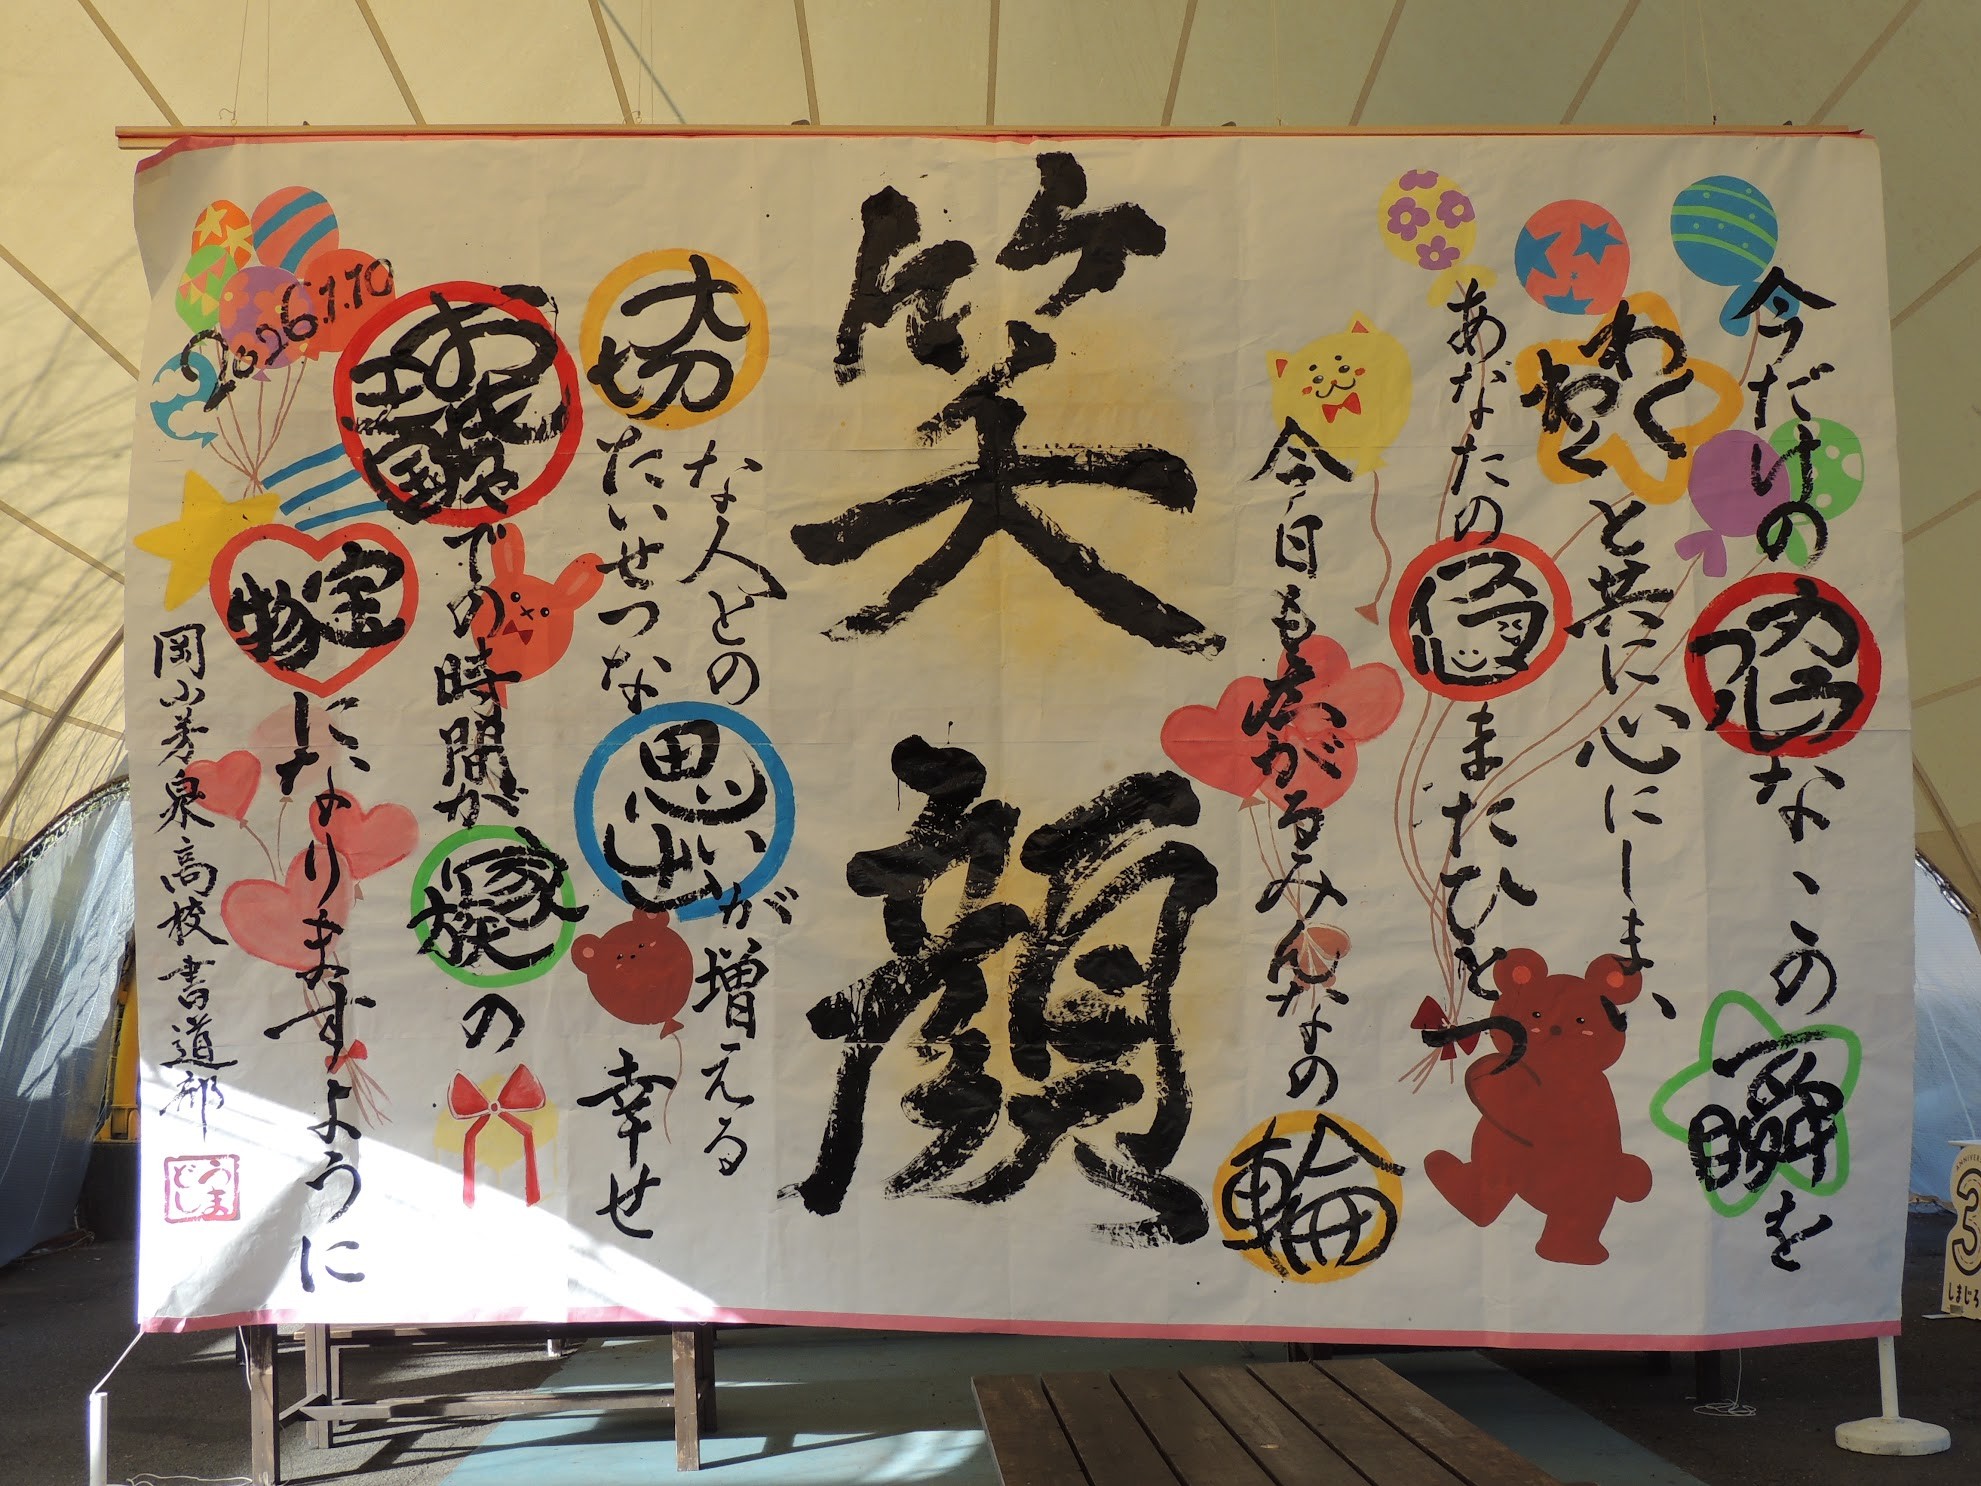 今だけのカラフルなこの一瞬を
わくわくと共に心にしまい
あなたのスマイルまたひとつ
今日も広がるみんなの輪
笑顔
大切
な人との
たいせつな
思い出
が増える
幸せ
おもちゃ王国での時間が家族の
宝物になりますように
2026.1.10
岡山芳泉高校書道部
うま
どし
3
しまじろ